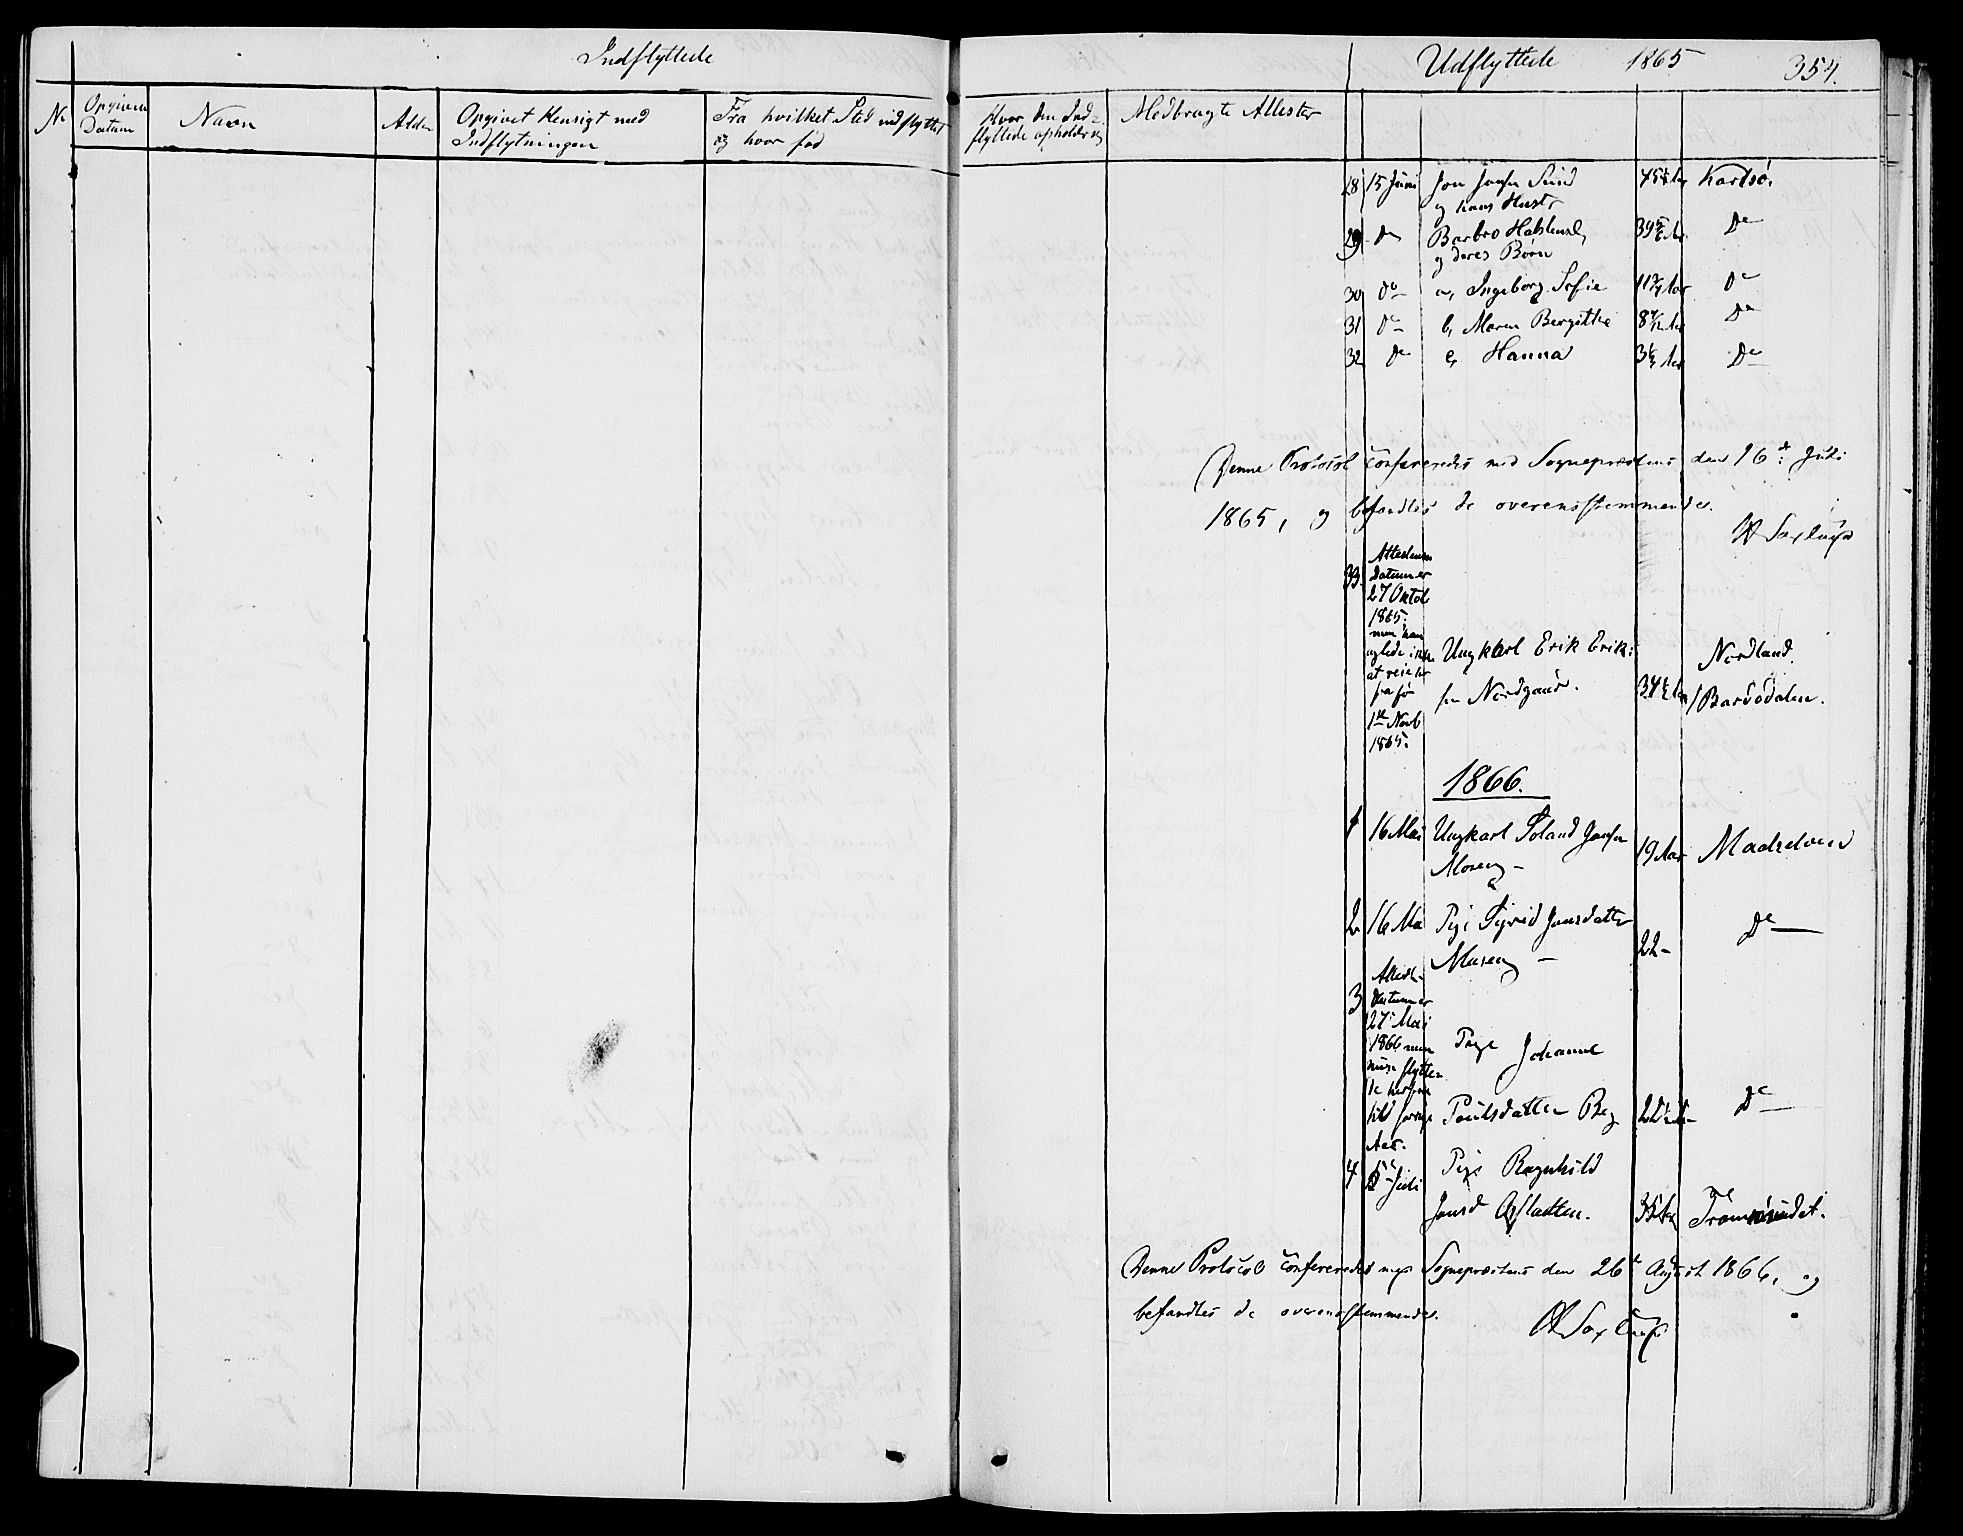 Indflyttede
No
Opgiven
Datum
Navn
Alder
Opgivet Hensigt med
Indflytningen
Fra hvilket Sted indflyttet
og hvor fød
Hvor den Ind-
flyttede opholder sig
Medbragte Attester
Udflyttede 1865 354.
28 15 Juni Jon Jonsen Sund 45 Karlsø.
og hans Hustr
29 do Barbro Halstensd. 39 Do
og deres Børn
30 do a, Ingeborg Sofie 11 Aar Do
31 do b, Maren Bergitthe 8 Aar Do
32 do c, Hanna 3 Aar Do
Denne Protocol confereredes med Sognepræstens den 16de Juli
1865, og befandtes de overensstemmende.
Saxlund
33. Attestens
Datum er
27 Oktob
1865.
men han
agtede ikke
at reise her
fra før
1ste Novb
1865.
Ungkarl Erik Erik:
sen Nordgaard. 34 Aar
Nordland.
/Bardodalen.
1866.
1 16 Mai Ungkarl Toland Jonsen
Moseng - 19 Aar Maalselven
2 16 Mai Pige Sigrid Jonsdatter
Moseng - 22- Do
3 Attest-
Datum er
27 Mai
1866 men
hun flytte-
de herfra
til forrige
Aar.
Pige Johanne
Poulsdatter Berg 22 Do
4 Juli Pige Ragnhild
Jonsd Opslatten. 35 Aar Tromsøsundet.
Denne Protocol confereredes med Sognepræstens den 26de August 1866, og
befandtes de overensstemmende.
Saxlund